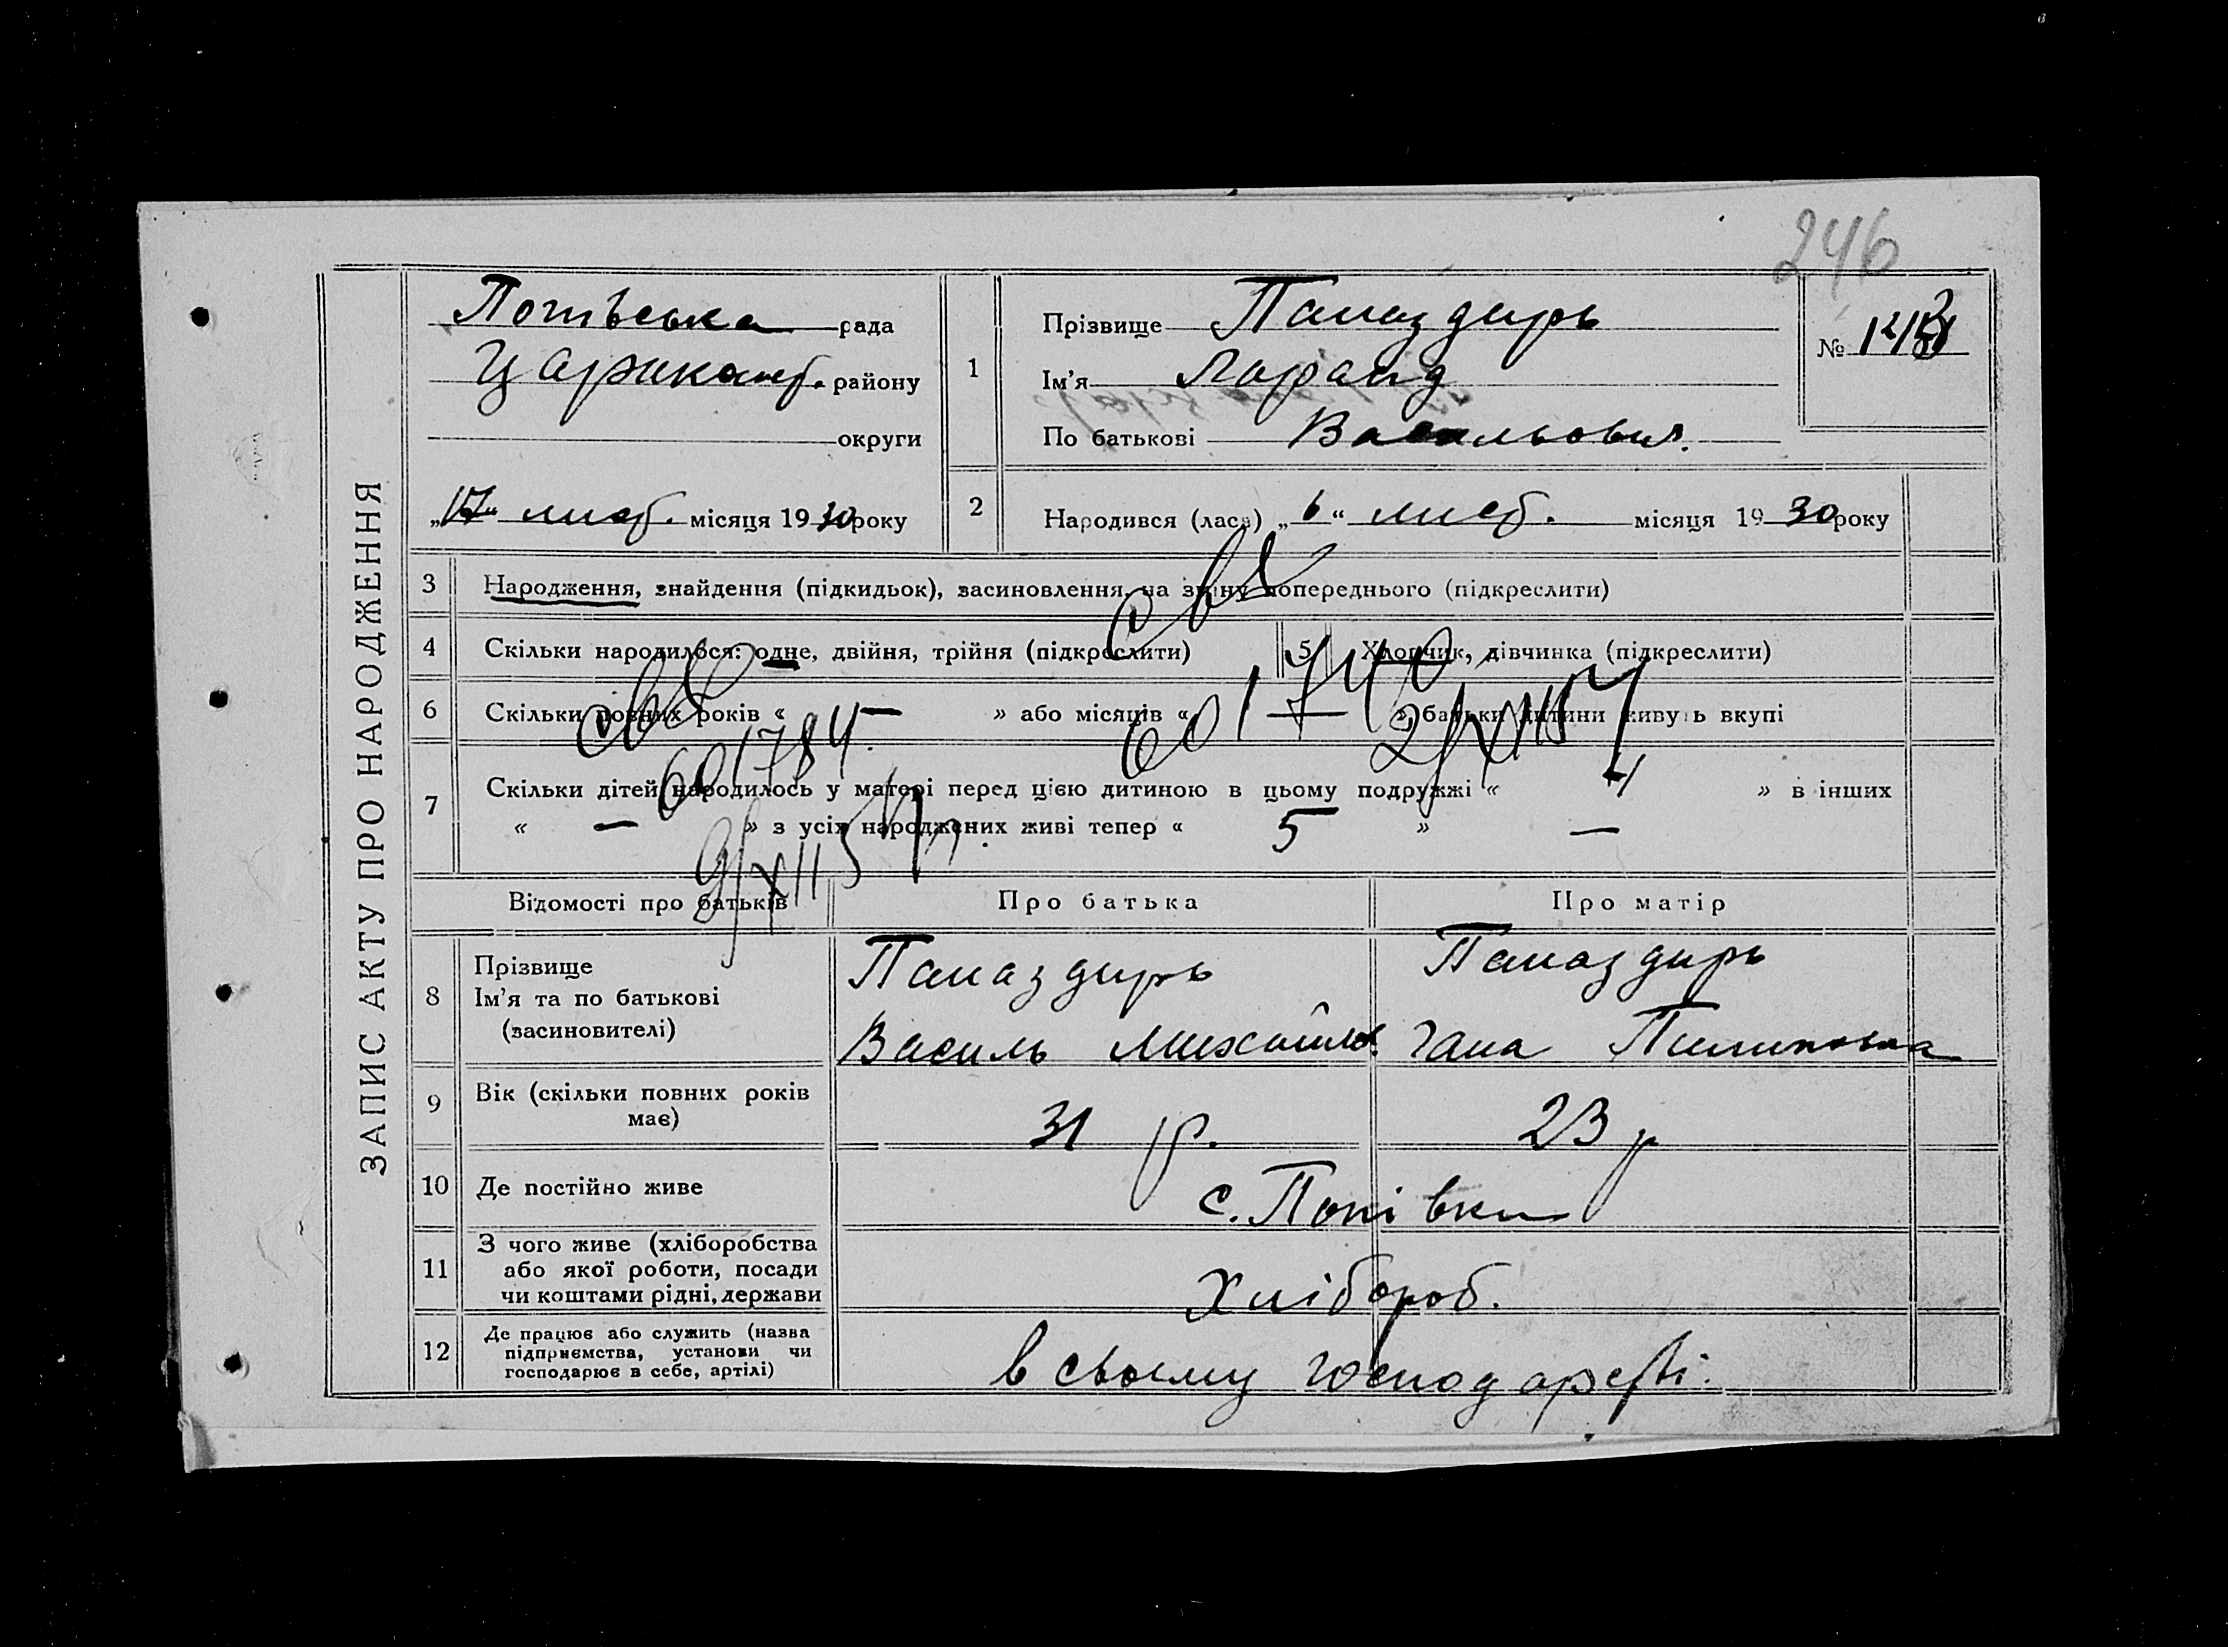 246
ЗАПИС АКТУ ПРО НАРОДЖЕННЯ
рада
Царикан. району
округи
„17“ лист. місяця 1930 року
1
Прізвище Паназдирь
Ім'я
По батькові Васильович.
№
2
Народився (лася) „6“ лист. місяця 1930 року
3
Народження, знайдення (підкидьок), засиновлення, на зміну попереднього (підкреслити)
4
Скільки народилося: одне, двійня, трійня (підкреслити)
5
Хлопчик, дівчинка (підкреслити)
6
Скільки повних років « — » або місяців « — » батьки дитини живуть вкупі
7
Скільки дітей народилось у матері перед цією дитиною в цьому подружжі « 4 » в інших
« — » з усіх народжених живі тепер « 5 » —
Відомості про батьків
Про батька
Про матір
8
Прізвище
Ім'я та по батькові
(засиновителі)
Паназдирь
Василь Михайлов.
Паназдирь
Гана Пилиповна
9
Вік (скільки повних років
має)
31 р.
23 р
10
Де постійно живе
с. Попівка
11
З чого живе (хліборобства
або якої роботи, посади
чи коштами рідні, держави
Хлібороб.
12
Де працює або служить (назва
підприємства, установи чи
господарює в себе, артілі)
в своєму господарстві.
св
601784
9/XII 57
св
601740